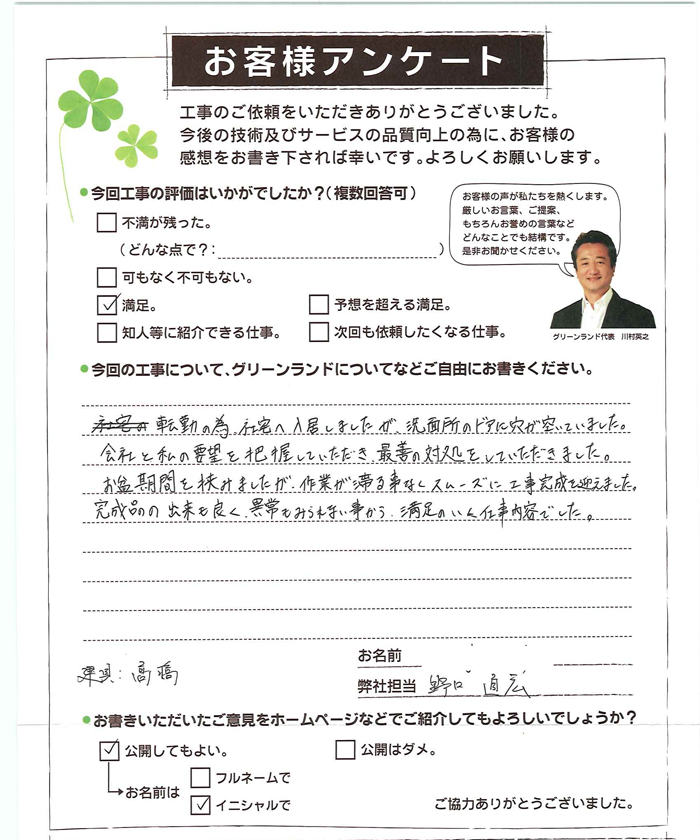 お客様アンケート
工事のご依頼をいただきありがとうございました。
今後の技術及びサービスの品質向上の為に、お客様の
感想をお書き下されば幸いです。よろしくお願いします。
●今回工事の評価はいかがでしたか？（複数回答可）
不満が残った。
（どんな点で？：　）
可もなく不可もない。
満足。
予想を超える満足。
知人等に紹介できる仕事。
次回も依頼したくなる仕事。
お客様の声が私たちを熱くします。
厳しいお言葉、ご提案、
もちろんお誉めの言葉など
どんなことでも結構です。
是非お聞かせください。
グリーンランド代表　川村英之
●今回の工事について、グリーンランドについてなどご自由にお書きください。
社宅の 転勤の為、社宅へ入居しましたが、洗面所のドアに穴が空いていました。
会社と私の要望を把握していただき、最善の対処をしていただきました。
お盆期間を挟みましたが、作業が滞る事なくスムーズに工事完成を迎えました。
完成品の出来も良く、異常もみられない事から、満足のいく仕事内容でした。
お名前
建具：高橋
弊社担当 野口 直広
●お書きいただいたご意見をホームページなどでご紹介してもよろしいでしょうか？
公開してもよい。
公開はダメ。
お名前は
フルネームで
イニシャルで
ご協力ありがとうございました。